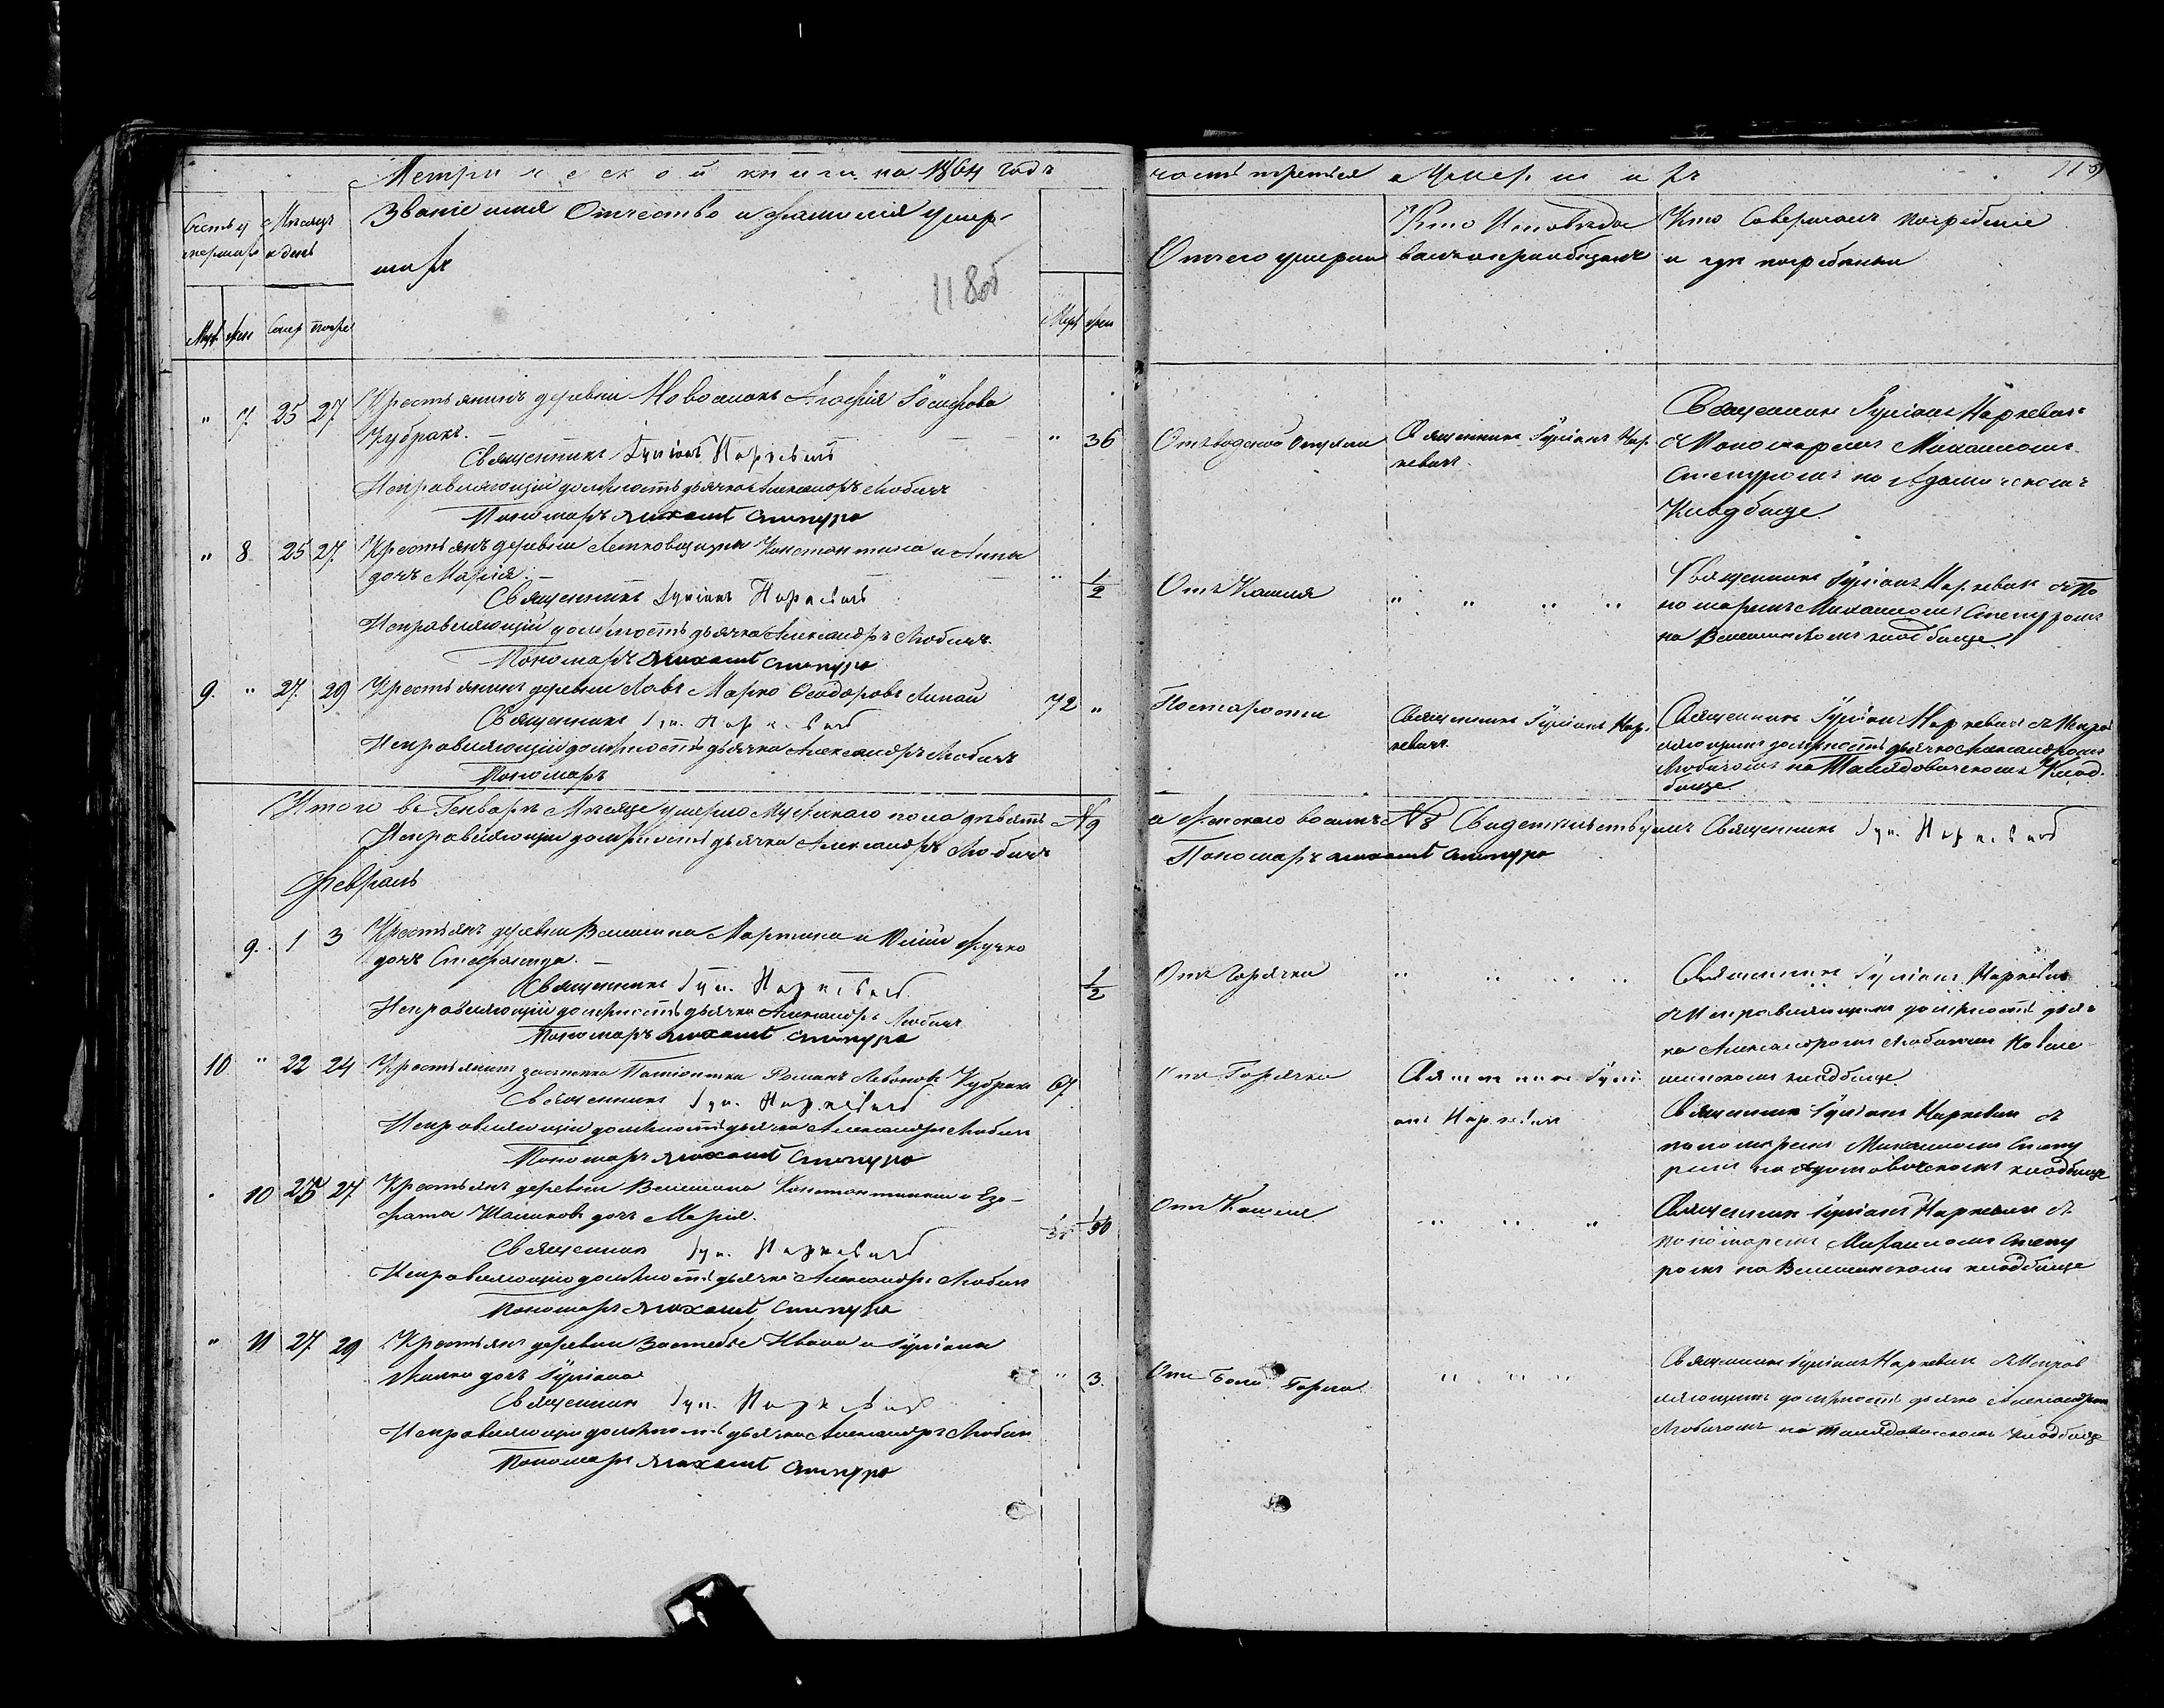 Метрической книги на 1864 годъ
часть третья о Умершихъ
118
Счетъ у
мершихъ
Мѣсяцъ
и день
Званіе имя Отчество и фамилія умер-
шихъ
118об
Муж Жен Смер Погре
Муж Жен
Отчего умерли
Кто Исповѣдо
валъ и пріобщалъ
Кто Совершалъ погребеніе
и гдѣ погребены
" 7. 25 27 Крестьянинъ деревни Агафія Іосифова
Кубракъ. " 36
Священникъ Іуліанъ Наркевичъ
Исправляющій должность дьячка Александръ Любичъ
Пономарь Михаилъ Степуро
Отъ водяной опухли
Священникъ Іуліанъ Нар-
кевичъ.
Священникъ Іуліанъ Наркевичъ
съ Пономаремъ Михаиломъ
Степуромъ на
Кладбище.
" 8 25 27. Крестьянъ деревни Константина и Анны
дочь Марія. " 1/2
Священникъ Іуліанъ Наркевичъ
Исправляющій должность дьячка Александръ Любичъ.
Пономарь Михаилъ Степуро
Отъ Кашля
" " " "
Священникъ Іуліанъ Наркевичъ съ По
номаремъ Михаиломъ Степуромъ
на кладбище
9. " 27. 29 Крестьянинъ деревни Марко Ѳеодоровъ 72 "
Священникъ Іул. Наркевичъ
Исправляющій должность дьячка Александръ Любичъ
Пономарь
По старости
Священникъ Іуліанъ Нар-
кевичъ.
Священникъ Іуліанъ Наркевичъ съ Исправ
ляющимъ должность дьячка Александромъ
Любичомъ на Клад-
бище
Итого въ Генварѣ Мѣсяце умерло Мужскаго пола девять № 9
а Женскаго восемь № 8 Свидетельствуемъ Священникъ Іул. Наркевичъ
Исправляющій должность дьячка Александръ Любичъ
Пономарь Михаилъ Степуро
Февраль
9. 1 3 Крестьянъ деревни Мартина и Юліи Жучко
дочь Стефанида. 1/2
Священникъ Іул. Наркевичъ.
Исправляющій должность дьячка Александръ Любичъ
Пономарь Михаилъ Степуро
Отъ Горячки
" " " "
Священникъ Іуліанъ Наркевичъ
съ Исправляющимъ должность дьяч-
ка Александромъ Любичомъ на Веле
кладбище.
10 " 22 24 Крестьянинъ застенка Романъ Левоновъ Кубракъ 67.
Священникъ Іул. Наркевичъ
Исправляющій должность дьячка Александръ Любичъ
Пономарь Михаилъ Степуро
Отъ Горячки
Священникъ Іулі
анъ Наркевичъ
Священникъ Іуліанъ Наркевичъ съ
пономаремъ Михаиломъ Степу
ромъ на кладбище
" 10 25 27. Крестьянъ деревни
дочь Марія.
Священникъ Іул. Наркевичъ
Исправляющій должность дьячка Александръ Любичъ
Пономарь Михаилъ Степуро
Отъ Кашля.
" " "
Священникъ Іуліанъ Наркевичъ съ
пономаремъ Михаиломъ Степу
ромъ на кладбище
" 11 27. 29 Крестьянъ деревни Ивана и Іуліаны
дочь Іуліана " 3.
Священникъ Іул. Наркевичъ
Исправляющій должность дьячка Александръ Любичъ
Пономарь Михаилъ Степуро
Отъ Боли Горла.
" " "
Священникъ Іуліанъ Наркевичъ съ Исправ
ляющимъ должность дьячка Александромъ
Любичомъ на кладбище